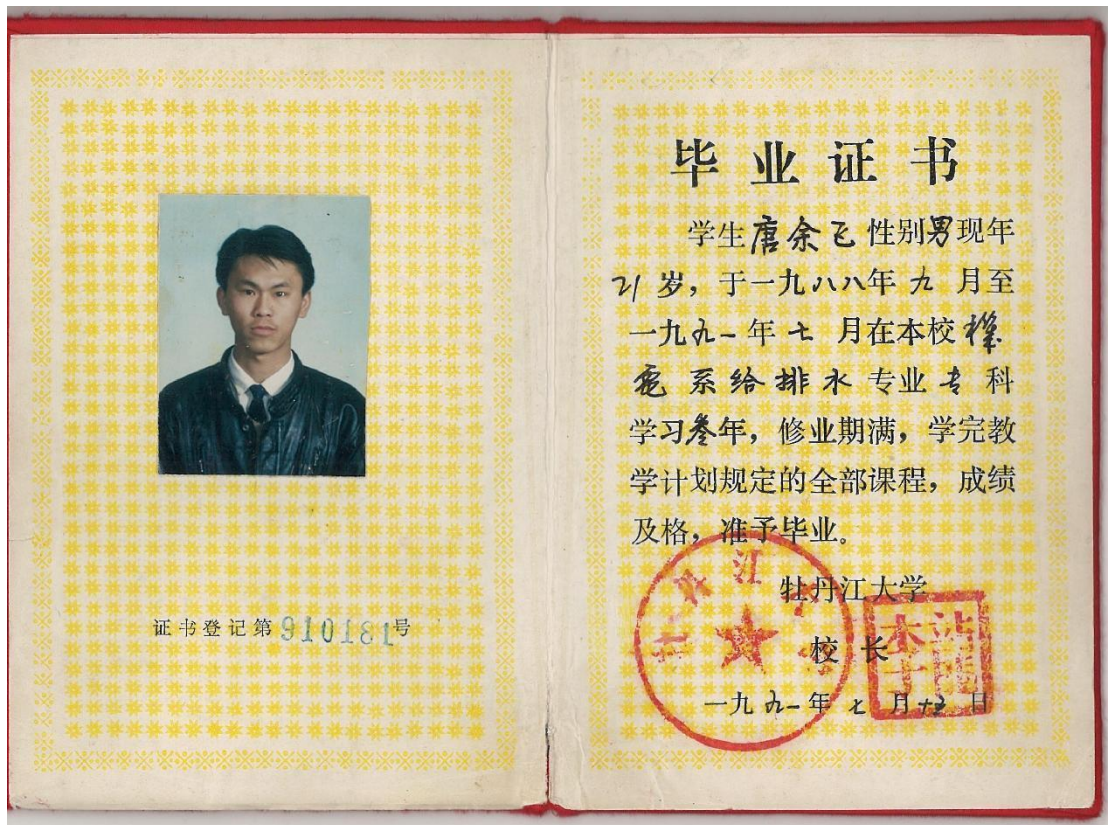 证书登记第9101131号
毕业证书
学生唐余飞性别男现年
21岁，于一九八八年九月至
一九九一年七月在本校机
电系给排水专业专科
学习叁年，修业期满，学完教
学计划规定的全部课程，成绩
及格，准予毕业。
牡丹江大学
校长
一九九一年七月十五日